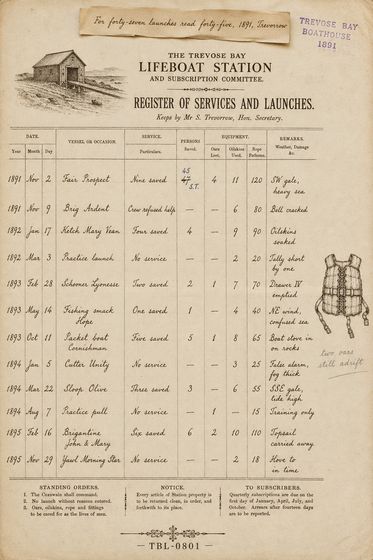 For forty-seven launches read forty-five, 1891, Trevorrow
TREVOSE BAY
BOATHOUSE
1891
THE TREVOSE BAY
LIFEBOAT STATION
AND SUBSCRIPTION COMMITTEE.
REGISTER OF SERVICES AND LAUNCHES.
Keeps by Mr S. Trevorrow, Hon. Secretary.
DATE. VESSEL OR OCCASION SERVICE. PERSONS EQUIPMENT. REMARKS.
Year Month Day Particulars. Saved. Oars Lost. Oilskins Used. Rope Fathoms. Weather, Damage &c.
45
1891 Nov 2 Fair Prospect Nine saved 47 4 11 120 SW gale,
S.T. heavy sea
1891 Nov 9 Brig Ardent Crew refused help — 6 80 Bell cracked
1892 Jan 17 Ketch Mary Vean Four saved 4 — 9 90 Oilskins
soaked
1892 Mar 3 Practice launch No service — 2 20 Tally short
by one
1893 Feb 28 Schooner Lyonesse Two saved 2 1 7 70 Drawer IV
emptied
1893 May 14 Fishing smack One saved 1 — 4 40 NE wind,
Hope confused sea
1893 Oct 11 Packet boat Five saved 5 1 8 65 Boat stove in
Cornishman on rocks
1894 Jan 5 Cutter Unity No service — 3 25 False alarm,
fog thick
1894 Mar 22 Sloop Olive Three saved 3 — 6 55 SSE gale,
tide high
1894 Aug 7 Practice pull No service 1 — 15 Training only
1895 Feb 16 Brigantine Six saved 6 2 10 110 Topsail
John & Mary carried away
1895 Nov 29 Yawl Morning Star No service — 2 18 Hove to
in lime
two oars
still adrift
STANDING ORDERS.
1. The Coxswain shall command.
2. No launch without reason entered.
3. Oars, oilskins, rope and fittings
to be cared for as the lives of men.
NOTICE.
Every article of Station property is
to be returned clean, in order, and
forthwith to its place.
TO SUBSCRIBERS.
Quarterly subscriptions are due on the
first day of January, April, July, and
October. Arrears after fourteen days
are to be reported.
— TBL-0801 —